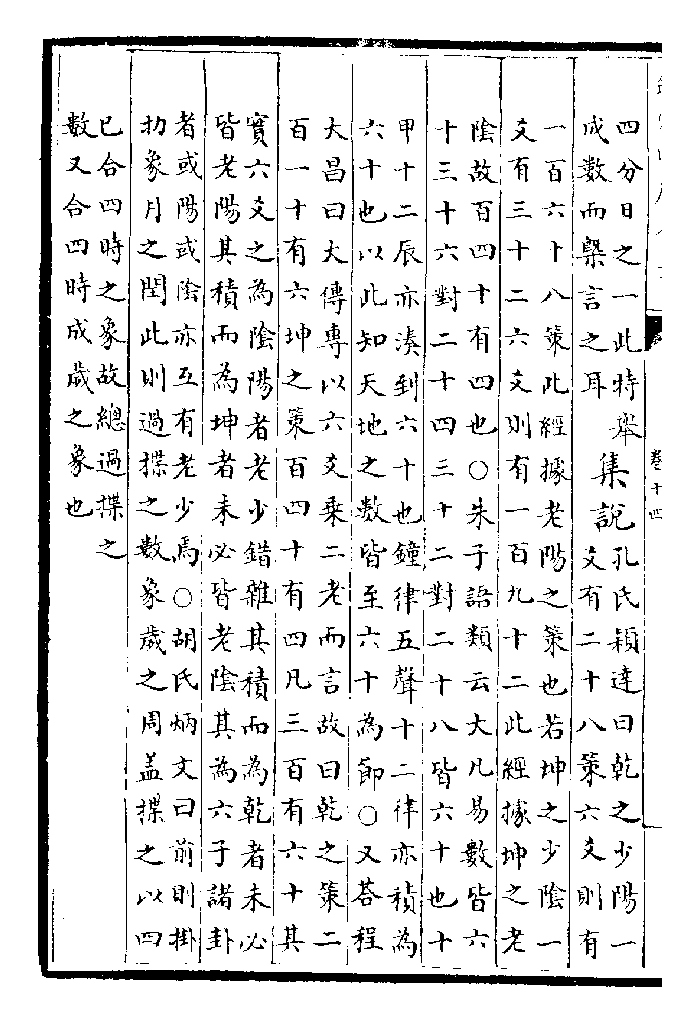 四分日之一此特舉
成數而槩言之耳
集說
孔氏穎達曰乾之少陽一
爻有二十八策六爻則有
一百六十八策此經據老陽之策也若坤之少陰一
爻有三十二六爻則有一百九十二此經據坤之老
陰故百四十有四也○朱子語類云大凡易數皆六
十三十六對二十四三十二對二十八皆六十也十
甲十二辰亦湊到六十也鐘律五聲十二律亦積為
六十也以此知天地之數皆至六十為節○又荅程
大昌曰大傳專以六爻乘二老而言故曰乾之策二
百一十有六坤之策百四十有四凡三百有六十其
實六爻之為陰陽者老少錯雜其積而為乾者未必
皆老陽其積而為坤者未必皆老陰其為六子諸卦
者或陽或陰亦互有老少焉○胡氏炳文曰前則掛
扐象月之閏此則過揲之數象歲之周盖揲之以四
已合四時之象故總過揲之
數又合四時成歲之象也
卷十四